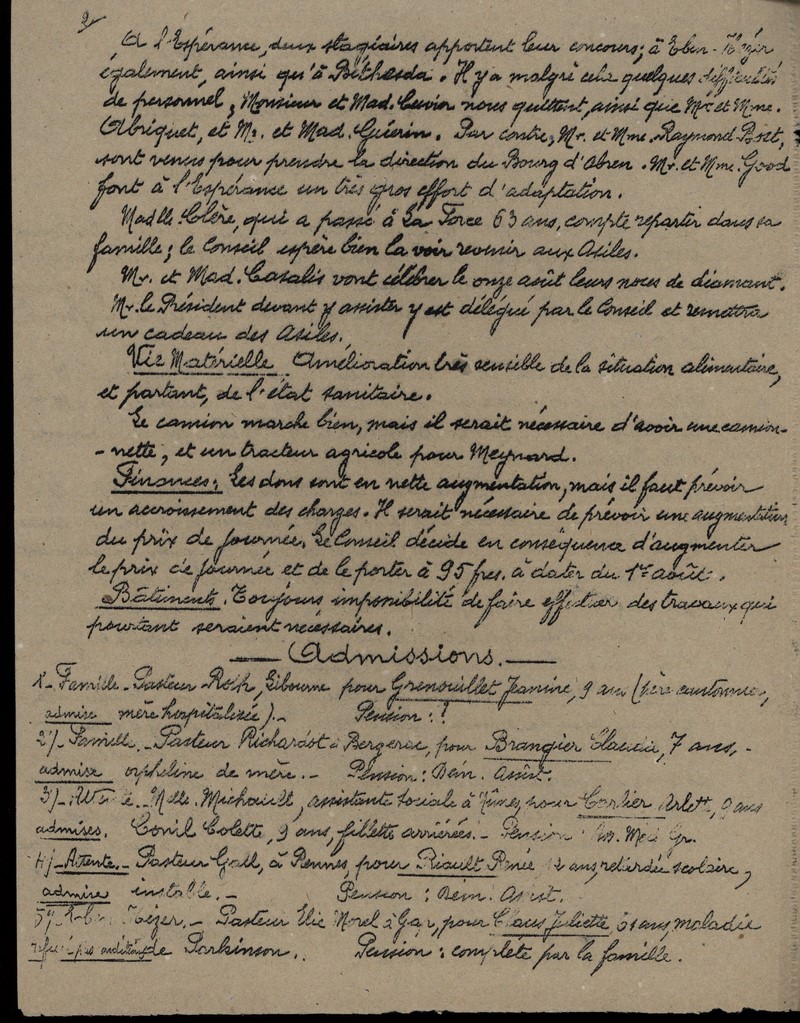 2
A l'Espérance, deux stagiaires apportent leur concours; à Eben-Hézer
également, ainsi qu'à Béthesda. Il y a malgré cela quelques difficultés
de personnel, Monsieur et Mad. Cuvier nous quittant, ainsi que Mr. et Mme.
Abriquet, et Mr. et Mad. Guérin. Par contre, Mr. et Mme. Raymond Bost,
sont venus pour prendre la direction du Bourg d'Abren. Mr. et Mme. Good
font à l'Espérance un très gros effort d'adaptation.
Madlle Clère, qui a passé à La Force 63 ans, compte repartir dans sa
famille; le Conseil espère bien la voir revenir aux Asiles.
Mr. et Mad. Casalis vont célébrer le onze août leurs noces de diamant.
Mr. le Président devant y assister y est délégué par le Conseil et remettra
un cadeau des Asiles.
Vie Matérielle Amélioration très sensible de la situation alimentaire,
et partant, de l'état sanitaire.
Le camion marche bien, mais il serait nécessaire d'avoir une camion-
-nette, et un tracteur agricole pour Meynard.
Finances: Les dons sont en nette augmentation, mais il faut prévoir
un accroissement des charges. Il serait nécessaire de prévoir une augmentation
du prix de journée. Le Conseil décide en conséquence d'augmenter
le prix de journée et de le porter à 95 frcs. à dater du 1er août.
Bâtiments. Toujours impossibilité de faire effectuer des travaux qui
pourtant seraient nécessaires.
— Admissions. —
1- Famille - Pasteur Roth, Libourne pour Grenouillet Jeanine, 9 ans (père cantonnier,
admise mère hospitalisée). - Pension: ?
2/- Famille. - Pasteur Richardot à Bergerac, pour Brangier Claudie, 7 ans, -
admise orpheline de mère. - Pension: Dem. Assist.
3/- Attente. Melle. Michault, assistante sociale à Nîmes pour Corlier Arlette, 9 ans
admises. Conil Colette, 9 ans, fillettes arriérées. - Pension Ass. Méd. Gr.
4/- Attente. - Pasteur Gall, à Rennes, pour Riault Renée 12 ans, retardée scolaire,
admise instable. - Pension: Dem. Assist.
5/- Eben Hézer. - Pasteur Elie Morel à Gap, pour Claus Juliette, 61 ans, maladie
de Parkinson. Pension: complète par la famille.